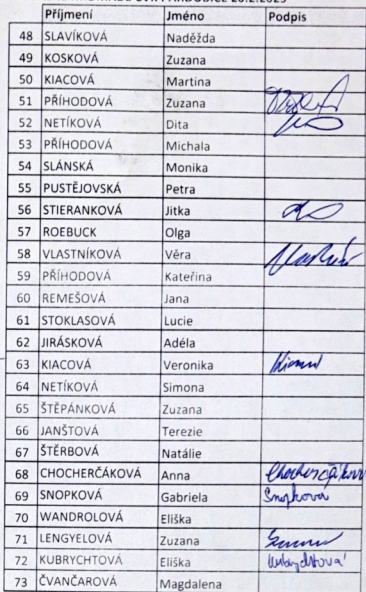 Příjmení Jméno Podpis
48 SLAVÍKOVÁ Naděžda
49 KOSKOVÁ Zuzana
50 KIACOVÁ Martina
51 PŘÍHODOVÁ Zuzana
52 NETÍKOVÁ Dita
53 PŘÍHODOVÁ Michala
54 SLÁNSKÁ Monika
55 PUSTĚJOVSKÁ Petra
56 STIERANKOVÁ Jitka
57 ROEBUCK Olga
58 VLASTNÍKOVÁ Věra
59 PŘÍHODOVÁ Kateřina
60 REMEŠOVÁ Jana
61 STOKLASOVÁ Lucie
62 JIRÁSKOVÁ Adéla
63 KIACOVÁ Veronika
64 NETÍKOVÁ Simona
65 ŠTĚPÁNKOVÁ Zuzana
66 JANŠTOVÁ Terezie
67 ŠTĚRBOVÁ Natálie
68 CHOCHERČÁKOVÁ Anna
69 SNOPKOVÁ Gabriela Snopková
70 WANDROLOVÁ Eliška
71 LENGYELOVÁ Zuzana
72 KUBRYCHTOVÁ Eliška
73 ČVANČAROVÁ Magdalena